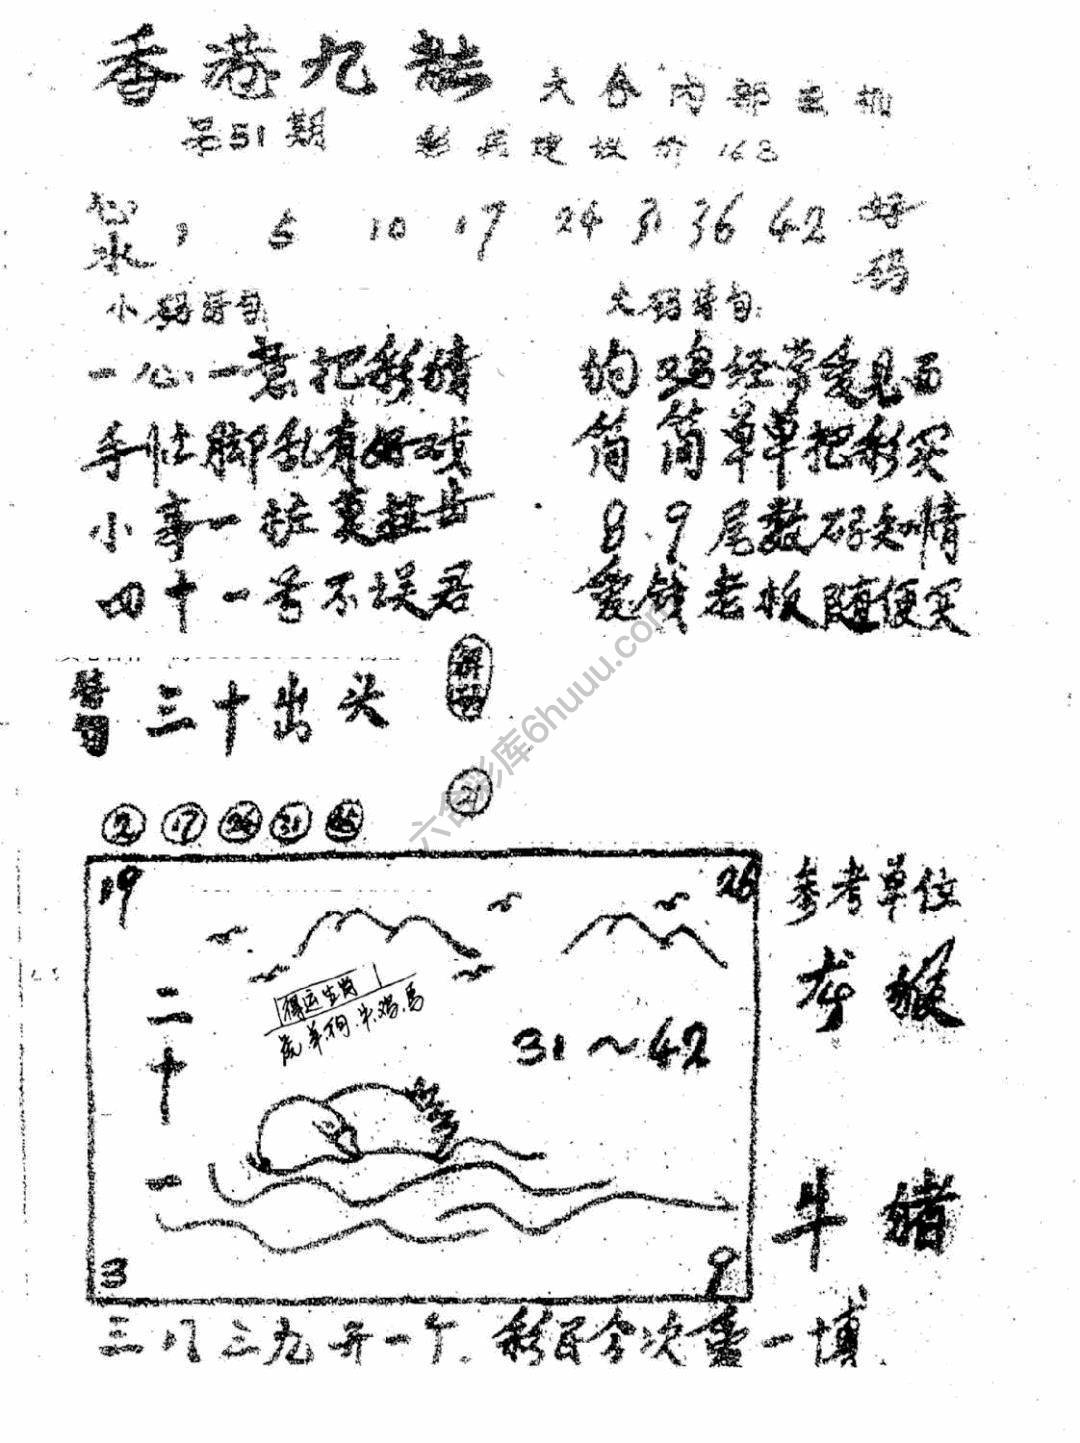 香港九龙
六合内部主机
第51期
彩民建议价 163
心水 5 10 17 24 31 36 42 好码
小码诗句
大码诗句
一心一意把彩猜
手忙脚乱有好戏
小事一桩莫挂齿
四十一号不误君
约鸡经常爱见面
简简单单把彩买
8.9尾数码知情
爱钱老板随便买
三十出头
21
2 17 26 31
19
26
参考单位
龙猴
得运生肖
虎羊狗.牛鸡.马
二十一
31～42
牛猪
3
9
三八三九开一个.彩民今次重一博
六合彩库6huuu.com